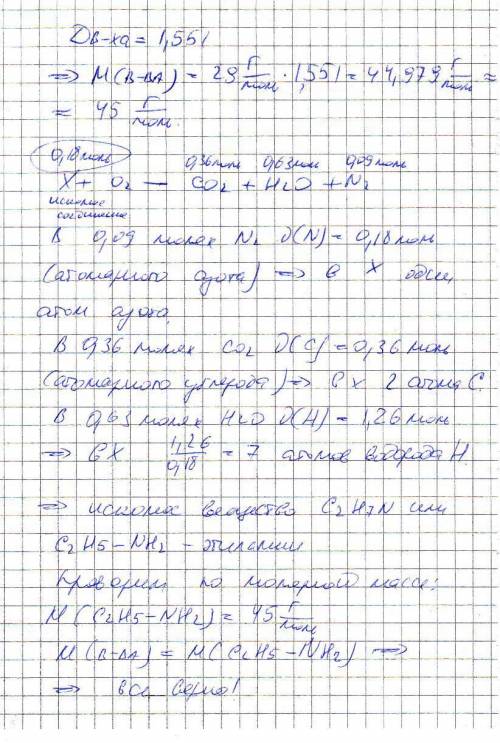 Dв-ха = 1,551
=> M(в-ва) = 29 г/моль · 1,551 = 44,979 г/моль ≈
≈ 45 г/моль.
0,18 моль 0,36 моль 0,63 моль 0,09 моль
X + O2 — CO2 + H2O + N2
искомое
соединение
В 0,09 молях N2 ϑ(N) = 0,18 моль
(атомарного азота) => в X один
атом азота.
В 0,36 молях CO2 ϑ(C) = 0,36 моль
(атомарного углерода) => в X 2 атома C.
В 0,63 молях H2O ϑ(H) = 1,26 моль
=> в X 1,26/0,18 = 7 атомов водорода H
=> искомое вещество C2H7N или
C2H5-NH2 - этиламин
Проверим по молярной массе:
M(C2H5-NH2) = 45 г/моль
M(в-ва) = M(C2H5-NH2) =>
=> все верно!